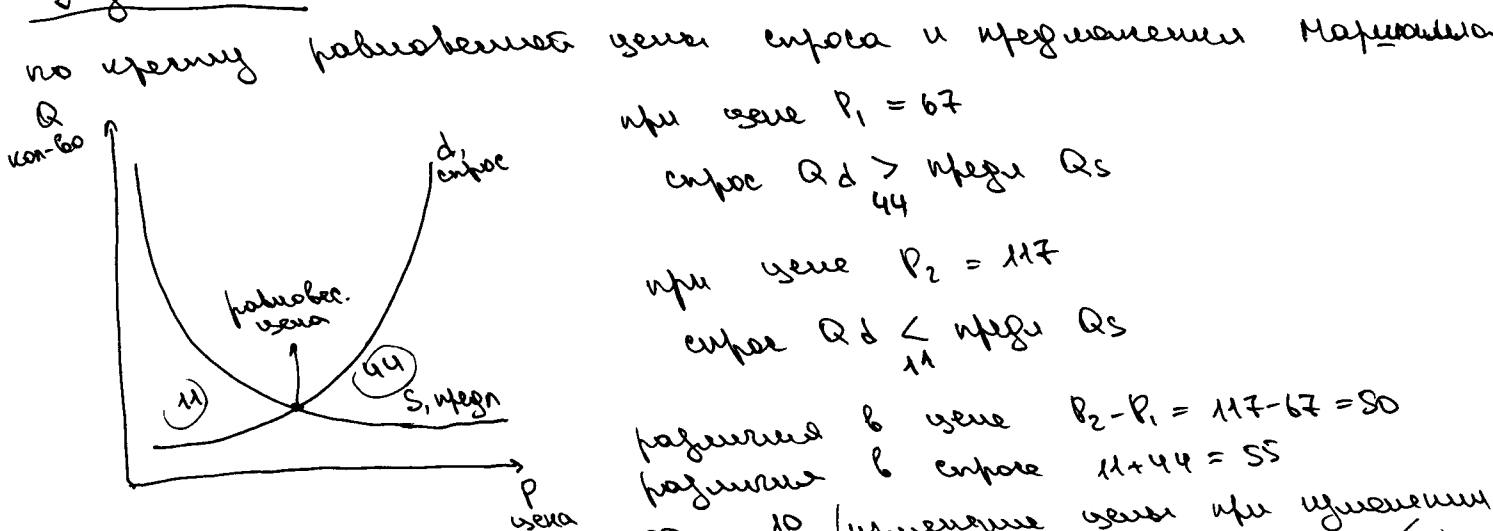 по кресту равновесной цены спроса и предложения Маршалла
Q
кол-во
d,
спрос
равновес.
цена
11
44
S, предл
P
цена
при цене P₁ = 67
спрос Qd > предл Qs
44
при цене P₂ = 117
спрос Qd < предл Qs
11
различия в цене P₂-P₁ = 117-67 = 50
различия в спросе 11+44 = 55
10 изменение цены при изменении